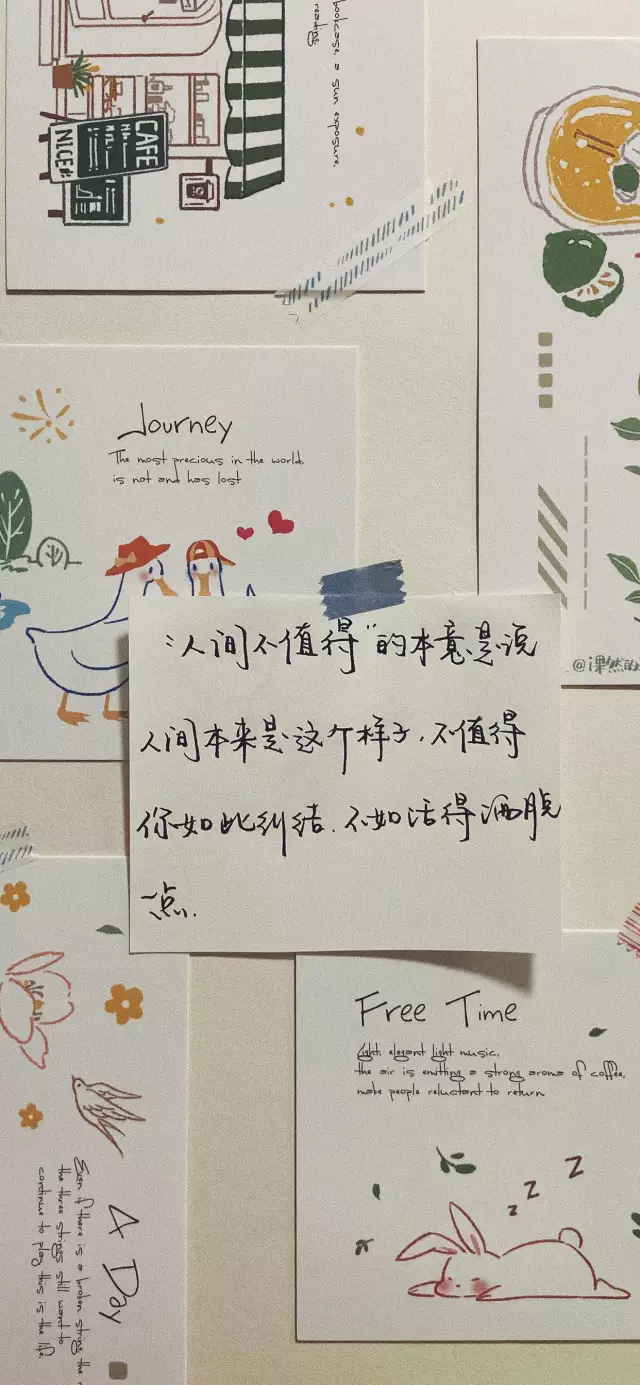 bookcase a sun exposure.
reading.
CAFE
NICE
Journey
The most precious in the world.
is not and has lost
"人间不值得"的本意是说
人间本来是这个样子,不值得
你如此纠结.不如活得洒脱
一点.
@i果然的
Free Time
Light, elegant light music,
the air is emitting a strong aroma of coffee,
make people reluctant to return
A Day
Even if there is a broken string the
the three strings still want to
continue to play this is the life.